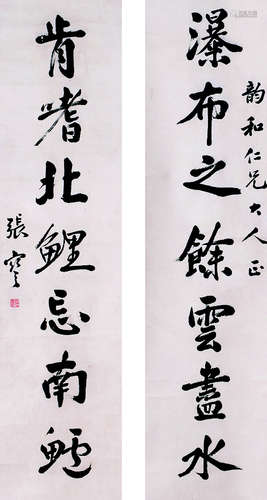 韵和仁兄大人正
瀑布之餘雲盡水
肯嗜北鯉忘南鱸
張謇